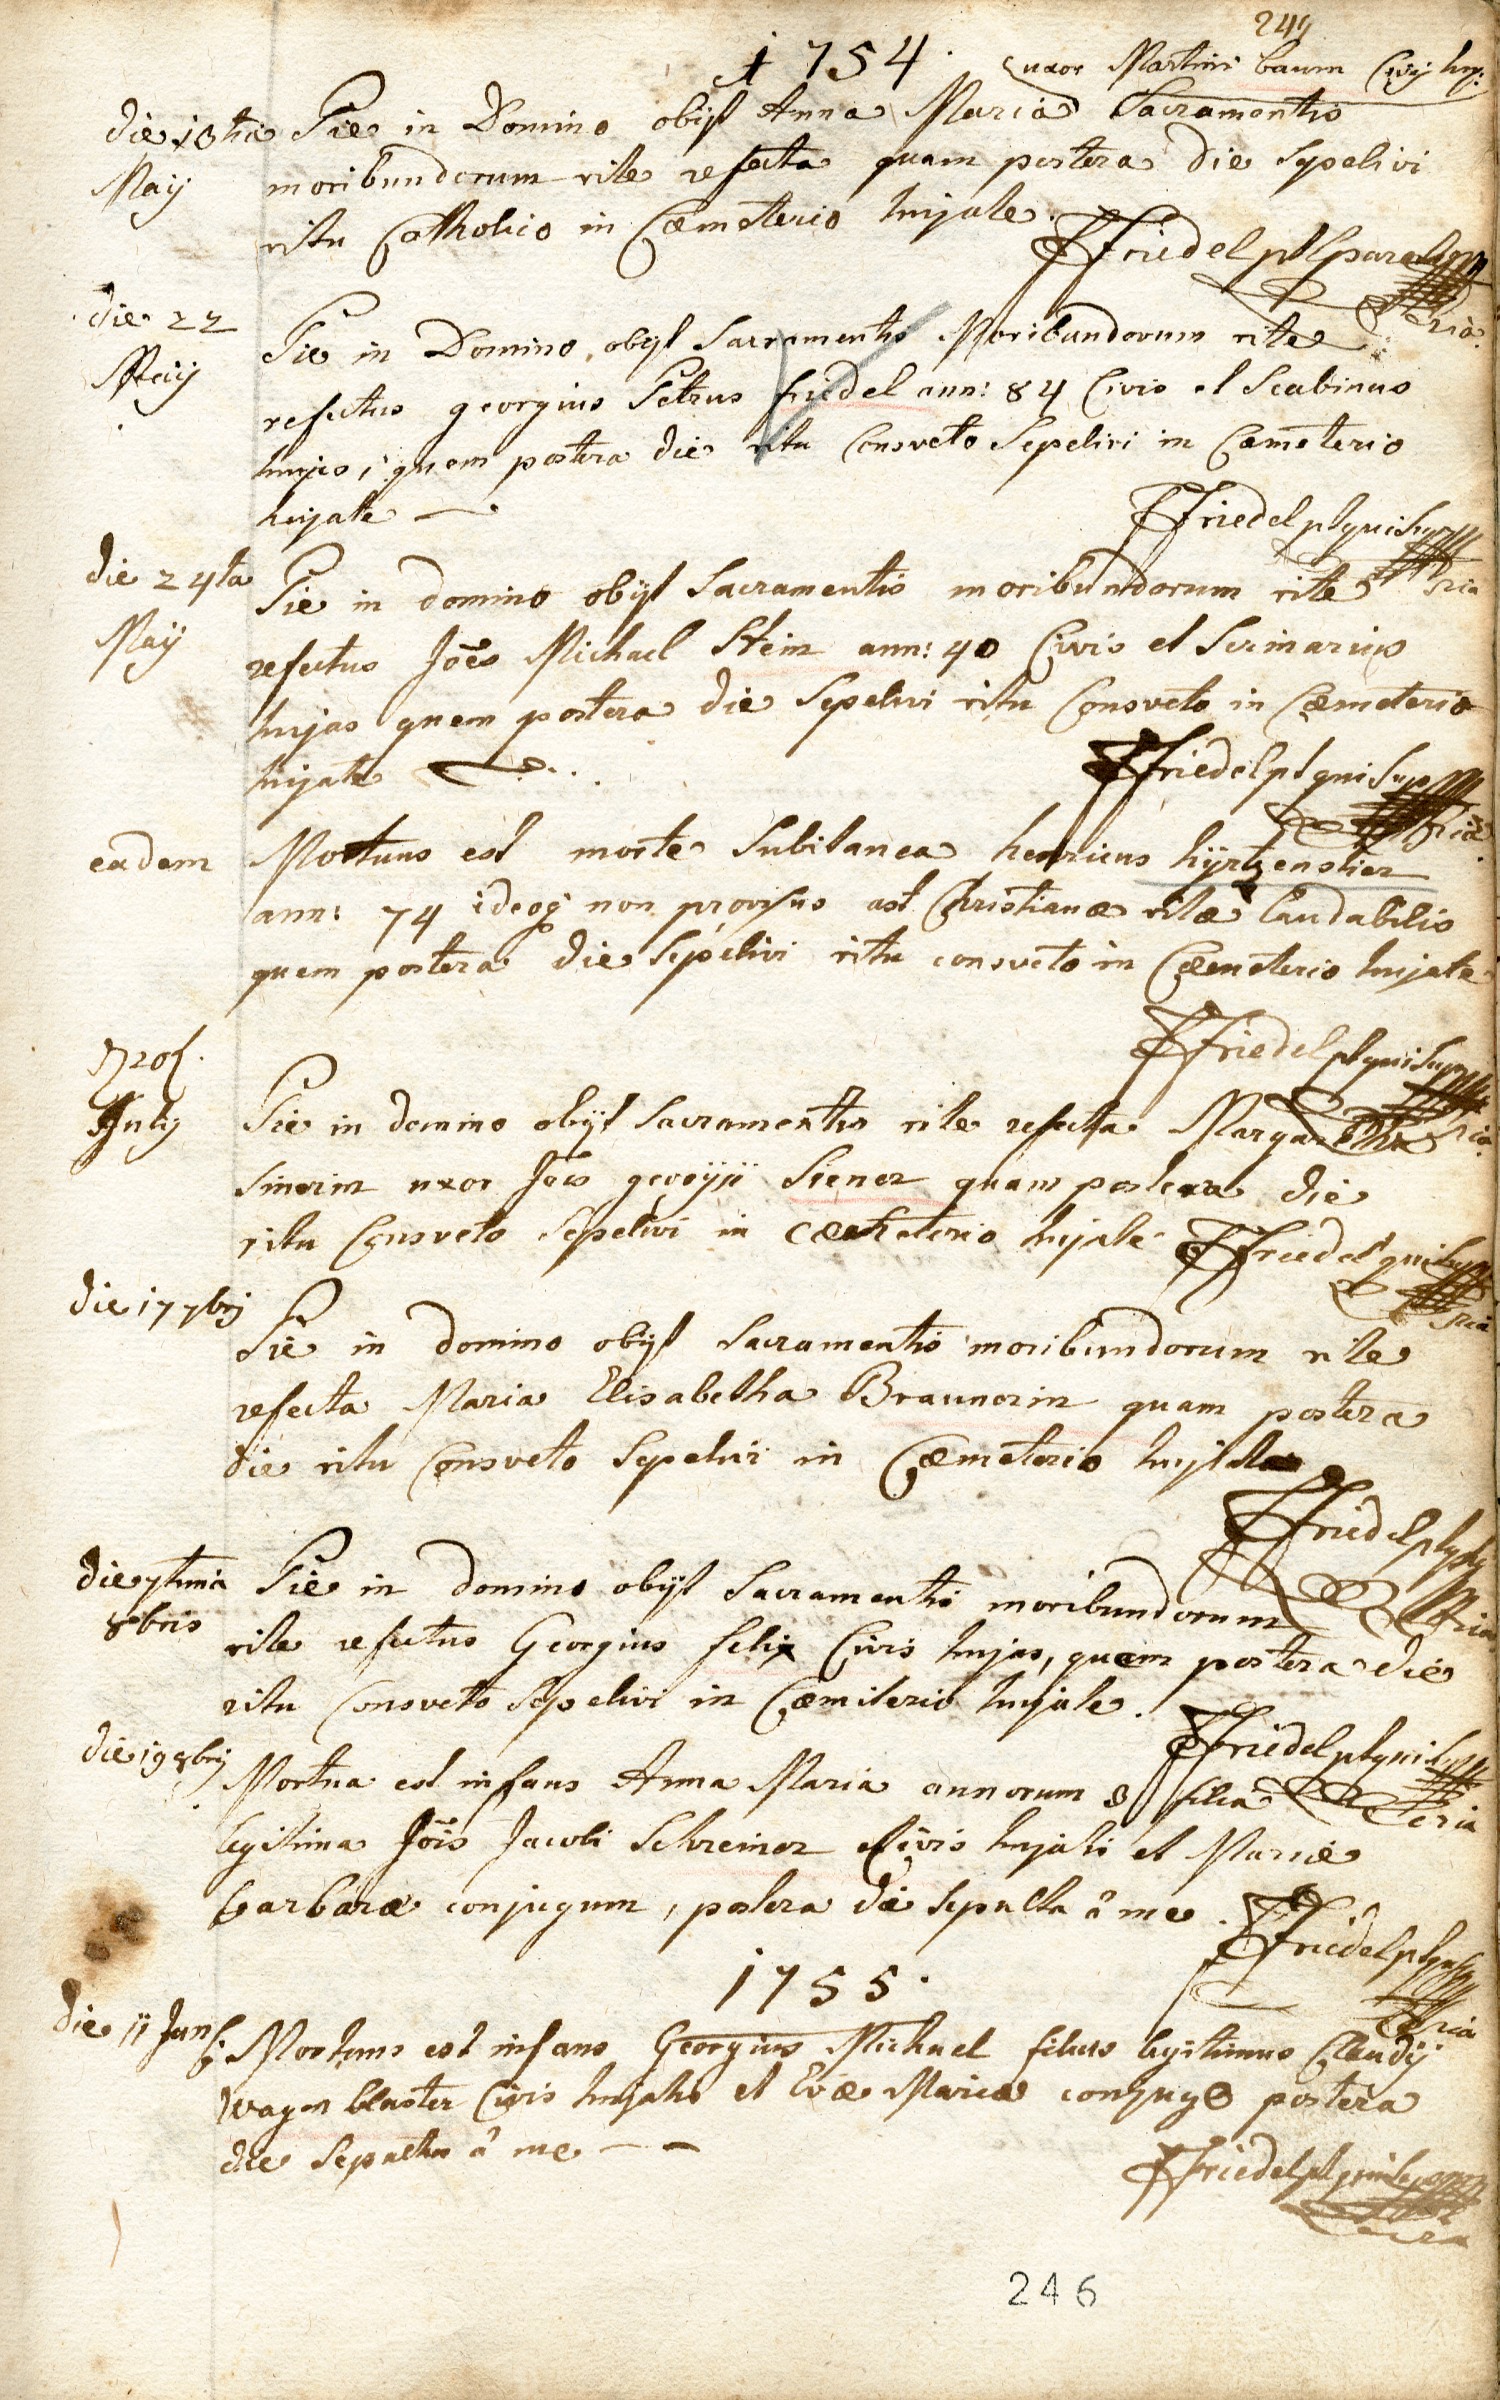 249
1754.
uxor Martini baum Civis huj:
die 18tia Pie in Domino obijt Anna Maria Sacramentis
May moribundorum rite refecta quam postera die Sepelivi
ritu Catholico in Cæmeterio hujate.
Friedel
die 22 Pie in Domino obijt Sacramentis Moribundorum rite
May refectus georgius Petrus friedel ann: 84 Civis et Scabinus
hujas, quem postera die ritu Consveto Sepelivi in Cæmeterio
hujate
Friedel
die 24ta Pie in domino obijt Sacramentis moribundorum rite
May refectus Jões Michael Stein ann: 40 Civis et Scrinarius
hujas quem postera die Sepelivi ritu Consveto in Cæmeterio
hujate
Friedel
eadem Mortuus est morte Subitanea henricus hÿrtzenstier
ann: 74 ideoq non provisus ast Christianæ vitæ laudabilis
quem postera die Sepelivi ritu consveto in Cæmeterio hujate
Friedel
July Pie in domino obijt Sacramentis rite refecta Margaretha
Sinerin uxor Jois georgij Siener quam postera die
ritu Consveto Sepelivi in Cæmeterio hujate
Friedel
die 17 7brij
Pie in domino obijt Sacramentis moribundorum rite
refecta Maria Elisabetha Braunerin quam postera
die ritu Consveto Sepelivi in Cæmeterio hujate
Friedel
die 7tima Pie in domino obijt Sacramentis moribundorum
8bris rite refectus Georgius felix Civis hujas, quem postera die
ritu Consveto Sepelivi in Cæmiterio hujate.
Friedel
die 19 8brij Mortua est infans Anna Maria annorum 8 filia
legitima Jõis Jacobi Schreiner Civis hujatis et Mariæ
barbaræ conjugum, postera die Sepulta â me.
Friedel
1755.
die 11 Jan Mortuus est infans Georgius Michael filius legitimus Claudij
Wagenblaster Civis hujatis et Evæ Mariæ conjug postera
die Sepultus â me
Friedel
246